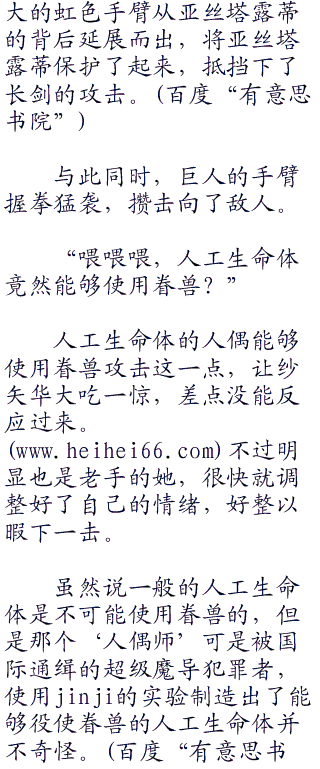 大的虹色手臂从亚丝塔露蒂
的背后延展而出，将亚丝塔
露蒂保护了起来，抵挡下了
长剑的攻击。(百度“有意思
书院”)
与此同时，巨人的手臂
握拳猛袭，攒击向了敌人。
“喂喂喂，人工生命体
竟然能够使用眷兽？”
人工生命体的人偶能够
使用眷兽攻击这一点，让纱
矢华大吃一惊，差点没能反
应过来。
(www.heihei66.com)不过明
显也是老手的她，很快就调
整好了自己的情绪，好整以
暇下一击。
虽然说一般的人工生命
体是不可能使用眷兽的，但
是那个‘人偶师’可是被国
际通缉的超级魔导犯罪者，
使用jinji的实验制造出了能
够役使眷兽的人工生命体并
不奇怪。(百度“有意思书